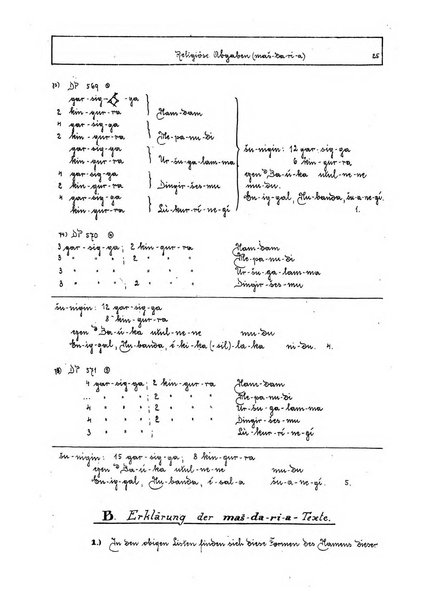 Religiöse Abgaben (maš-da-ri-a) 25
13) DP 569
gar-sig-ga
2 kin-gur-ra Ḫam-dam
4 gar-sig-ga
2 kin-gur-ra Me-pa-nu-di
gar-sig-ga
kin-gur-ra Ur-šu-ga-lam-ma
4 gar-sig-ga
2 kin-gur-ra Dingir-šeš-mu
gar-sig-ga
kin-gur-ra Lú-kur-rí-ne-gí
šu-nigin: 12 gar-sig-ga
6 kin-gur-ra
egen Ba-ú-ka udul-ne-ne
mu-du.
En-ig-gal, Nu-banda, šu-a-ne-gí
1.
14) DP 570
3 gar-sig-ga; 2 kin-gur-ra Ḫam-dam
3 " " " ; 2 " " " Me-pa-nu-di
3 " " " ; 2 " " " Ur-šu-ga-lam-ma
3 " " " ; 2 " " " Dingir-šeš-mu
šu-nigin: 12 gar-sig-ga
8 kin-gur-ra
egen Ba-ú-ka udul-ne-ne mu-du
En-ig-gal, Nu-banda, é-ki-ka(-sil)-la-ka ni-du. 4.
DP 571
4 gar-sig-ga; 2 kin-gur-ra Ḫam-dam
... " " " ; 2 " " " Me-pa-nu-di
4 " " " ; 2 " " " Ur-šu-ga-lam-ma
4 " " " ; 2 " " " Dingir-šeš-mu
3 " " " ; Lú-kur-rí-ne-gí
šu-nigin: 15 gar-sig-ga; 8 kin-gur-ra
egen Ba-ú-ka udul-ne-ne mu-du
En-ig-gal, Nu-banda, é-sal-a šu-a-ne-gí. 5.
B. Erklärung der maš-da-ri-a-Texte.
1.) In den obigen Listen finden sich diese Formen des Namens dieser